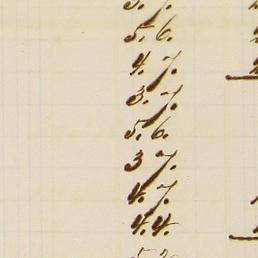 3. 7.
5. 6.
4. 7.
3. 7.
5. 6.
3 7.
4. 7.
4. 4.